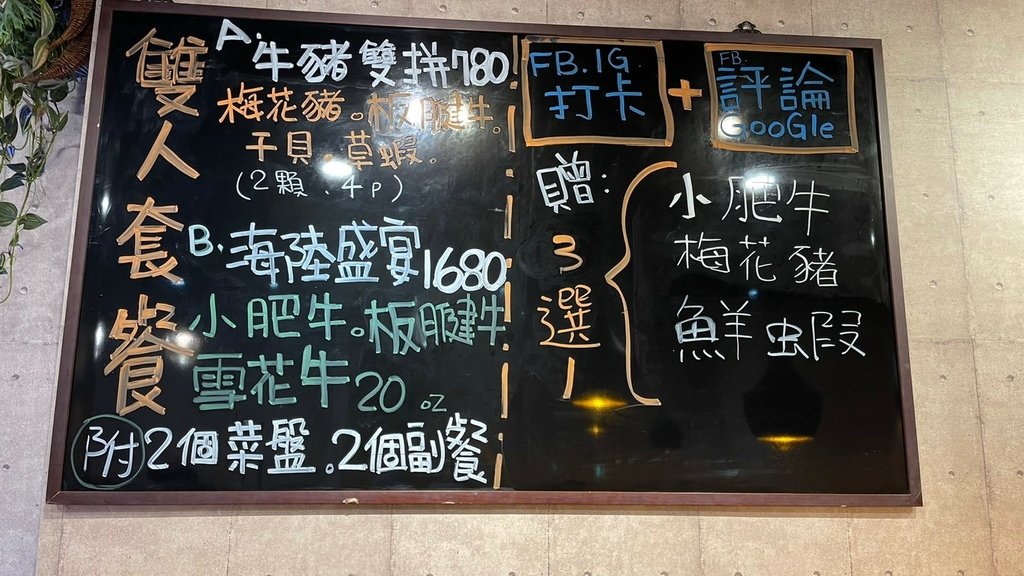 雙人套餐
A. 牛豬雙拼 780
梅花豬。板腱牛。
干貝。草蝦。
(2顆.4P)
B. 海陸盛宴 1680
小肥牛。板腱牛
雪花牛 20 oz
附 2個菜盤.2個副餐
FB.IG
打卡
+
FB.
評論
GooGle
贈:
3選1
小肥牛
梅花豬
鮮蝦